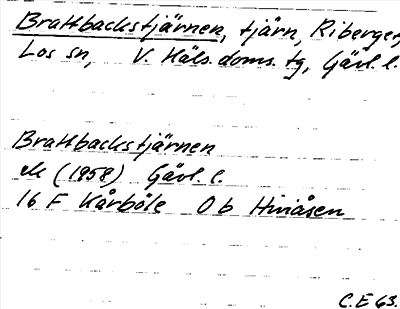 Brattbackstjärnen, tjärn, Riberget,
Los sn, V. Häls. doms. tg, Gävl. l.
Brattbackstjärnen
ek (1958) Gävl. l.
16 F Kårböle 0 b Hiviåsen
C.E 63.